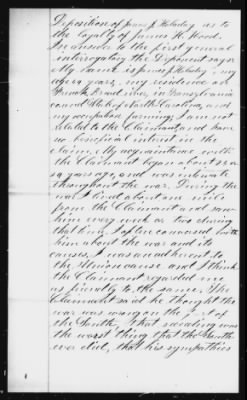 Deposition of James J. Holesby as to
the loyalty of James H. Wood.
In answer to the first general
interrogatory the Deponent says
My name is James J Holesby, my
age years, my residence on
French Broad river, in Transylvania
county State of North Carolina, and
my occupation farming; I am not
related to the Claimant, and have
no beneficial interest in the
claim. My acquaintance with
the Claimant began about
years ago, and was intimate
throughout the war. During the
war I lived about one mile
from the Claimant and saw
him every week or two during
that time, I often conversed with
him about the war and its
causes, I was an adherent to
the Union cause and I think
the Claimant regarded me
as friendly to the same. The
Claimant said he thought the
war was wrong on the part of
the South, that seceding was
the worst thing that the South
ever did, that his sympathies